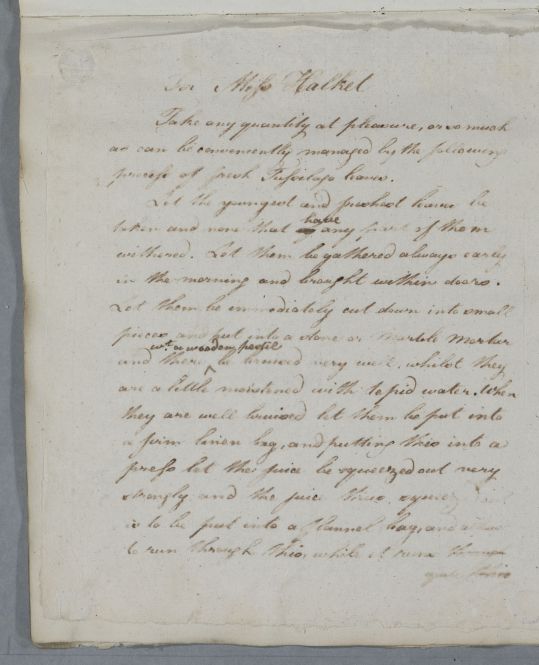 For Miss Halket
Take any quantity at pleasure, or so much
as can be conveniently managed by the following
process of fresh Tussilago leaves.
Let the youngest and freshest leaves be
taken and none that have any part of them
withered. Let them be gathered always early
in the morning and brought within doors.
Let them be immediately cut down into small
pieces and put into a stone or Marble Mortar
and there wt. a wooden pestle be bruised very well, whilst they
are a little moistened with tepid water. When
they are well bruised let them be put into
a firm linen bag, and putting this into a
press let the juice be squeezed out very
strongly. and the juice thus
is to be put into a flannel bag, and
to run through this, while it runs through